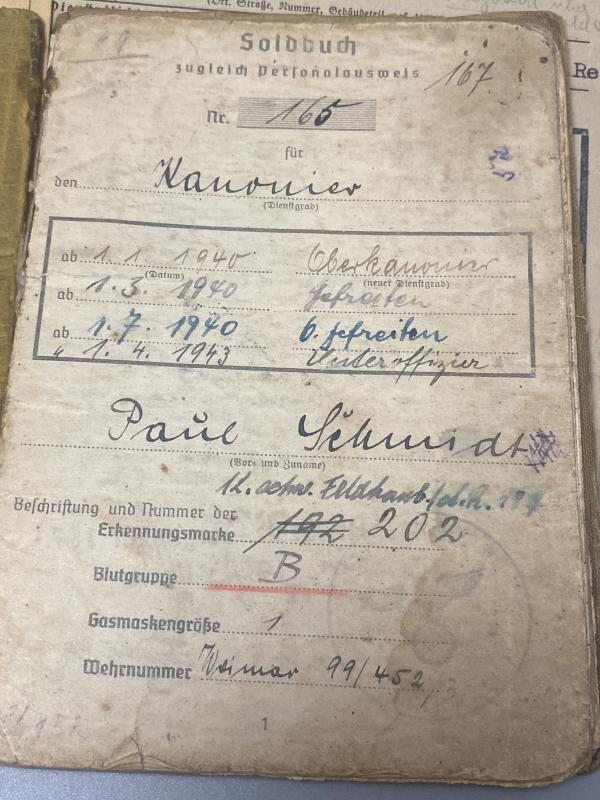 (Ort, Straße, Nummer, Gebäudeteil
Re
Soldbuch
zugleich Personalausweis
167
Nr. 165
für
den Kanonier
(Dienstgrad)
ab 1. 1. 1940 Oberkanonier
(Datum) (neuer Dienstgrad)
ab 1. 3. 1940 Gefreiten
ab 1. 7. 1940 O. Gefreiten
" 1. 4. 1943 Unteroffizier
Paul Schmidt
(Vor- und Zuname)
12. schw. Feldhaub.
Beschriftung und Nummer der
Erkennungsmarke 192 202
Blutgruppe B
Gasmaskengröße 1
Wehrnummer Weimar 99/452
1